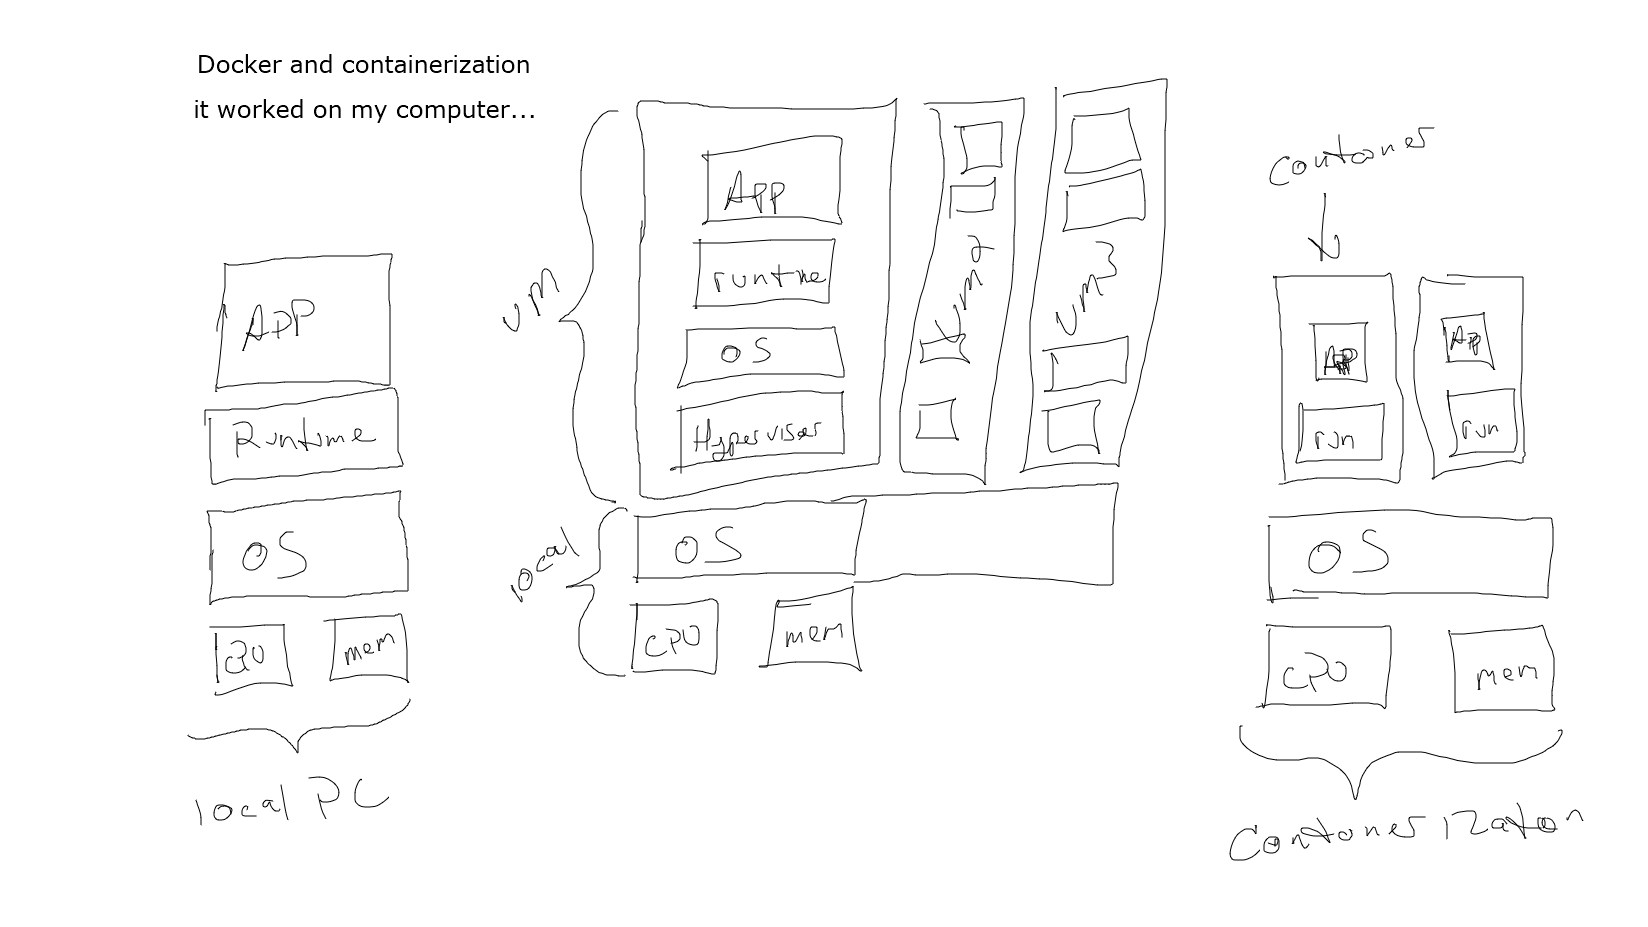 Docker and containerization
it worked on my computer...
APP
Runtime
OS
CPU
mem
local PC
VM
App
runtime
OS
Hypervisor
VM 2
VM 3
local
OS
CPU
mem
container
App
run
App
run
OS
CPU
mem
Containerization